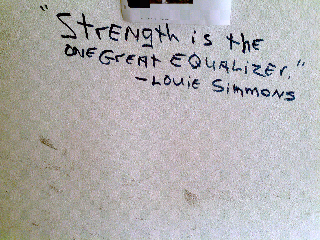 "Strength is the
one Great Equalizer."
-Louie Simmons